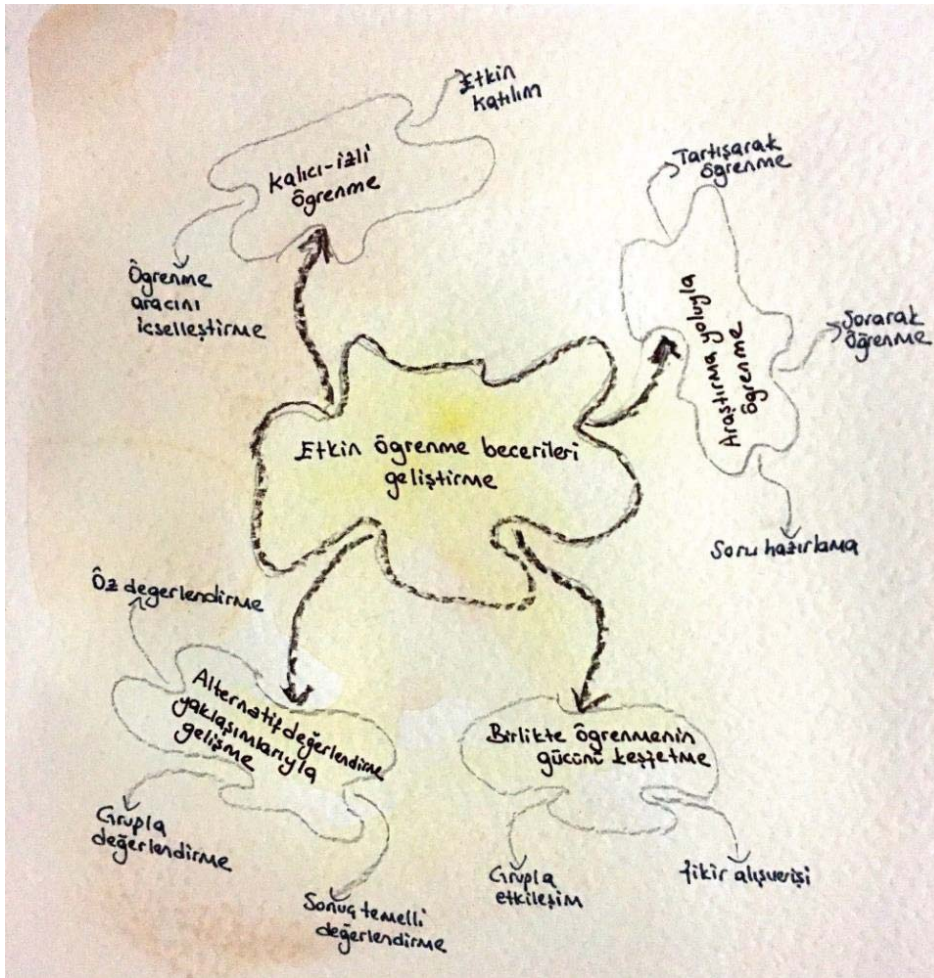 Etkin
katılım
Kalıcı-izli
öğrenme
Öğrenme
aracını
içselleştirme
Tartışarak
öğrenme
Araştırma yoluyla
öğrenme
Sorarak
öğrenme
Soru hazırlama
Etkin öğrenme becerileri
geliştirme
Öz değerlendirme
Alternatif değerlendirme
yaklaşımlarıyla
gelişme
Grupla
değerlendirme
Sonuç temelli
değerlendirme
Birlikte öğrenmenin
gücünü keşfetme
Grupla
etkileşim
fikir alışverişi